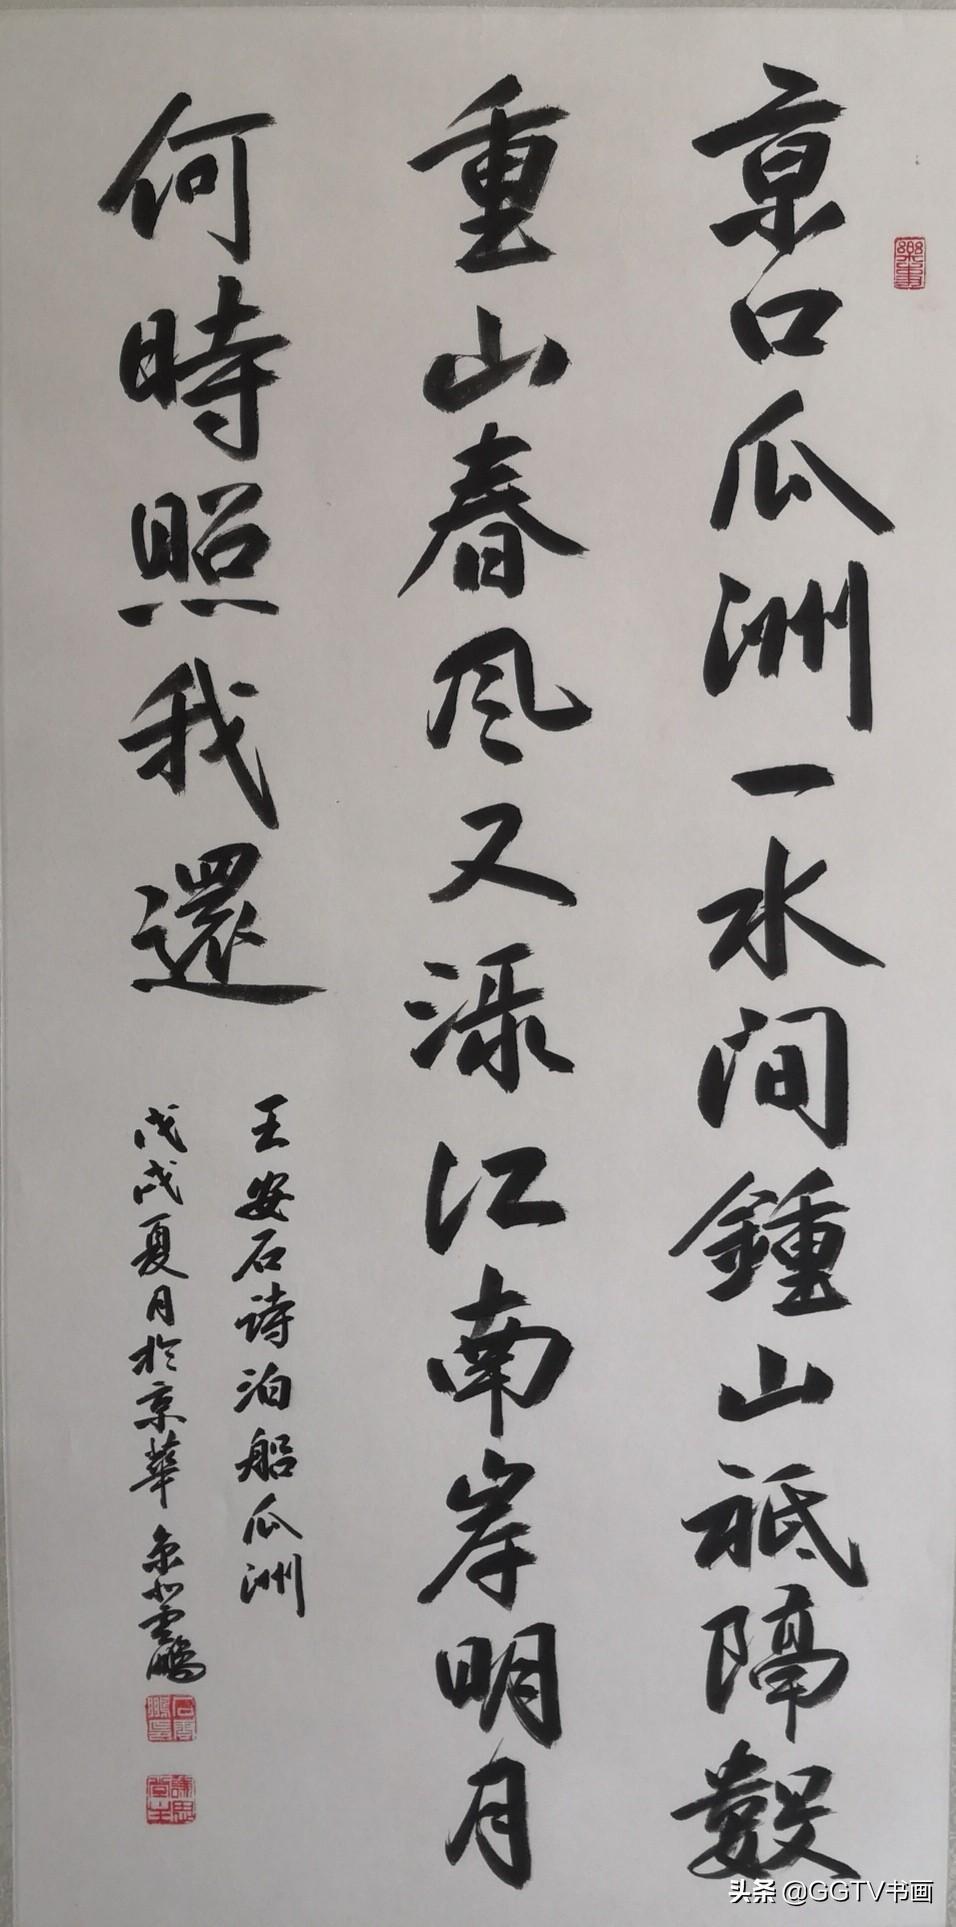 樂事
京口瓜洲一水间鍾山祗隔數
重山春风又渌江南岸明月
何時照我還
王安石诗泊船瓜洲
戊戌夏月於京華雲鵬
头条 @GGTV书画